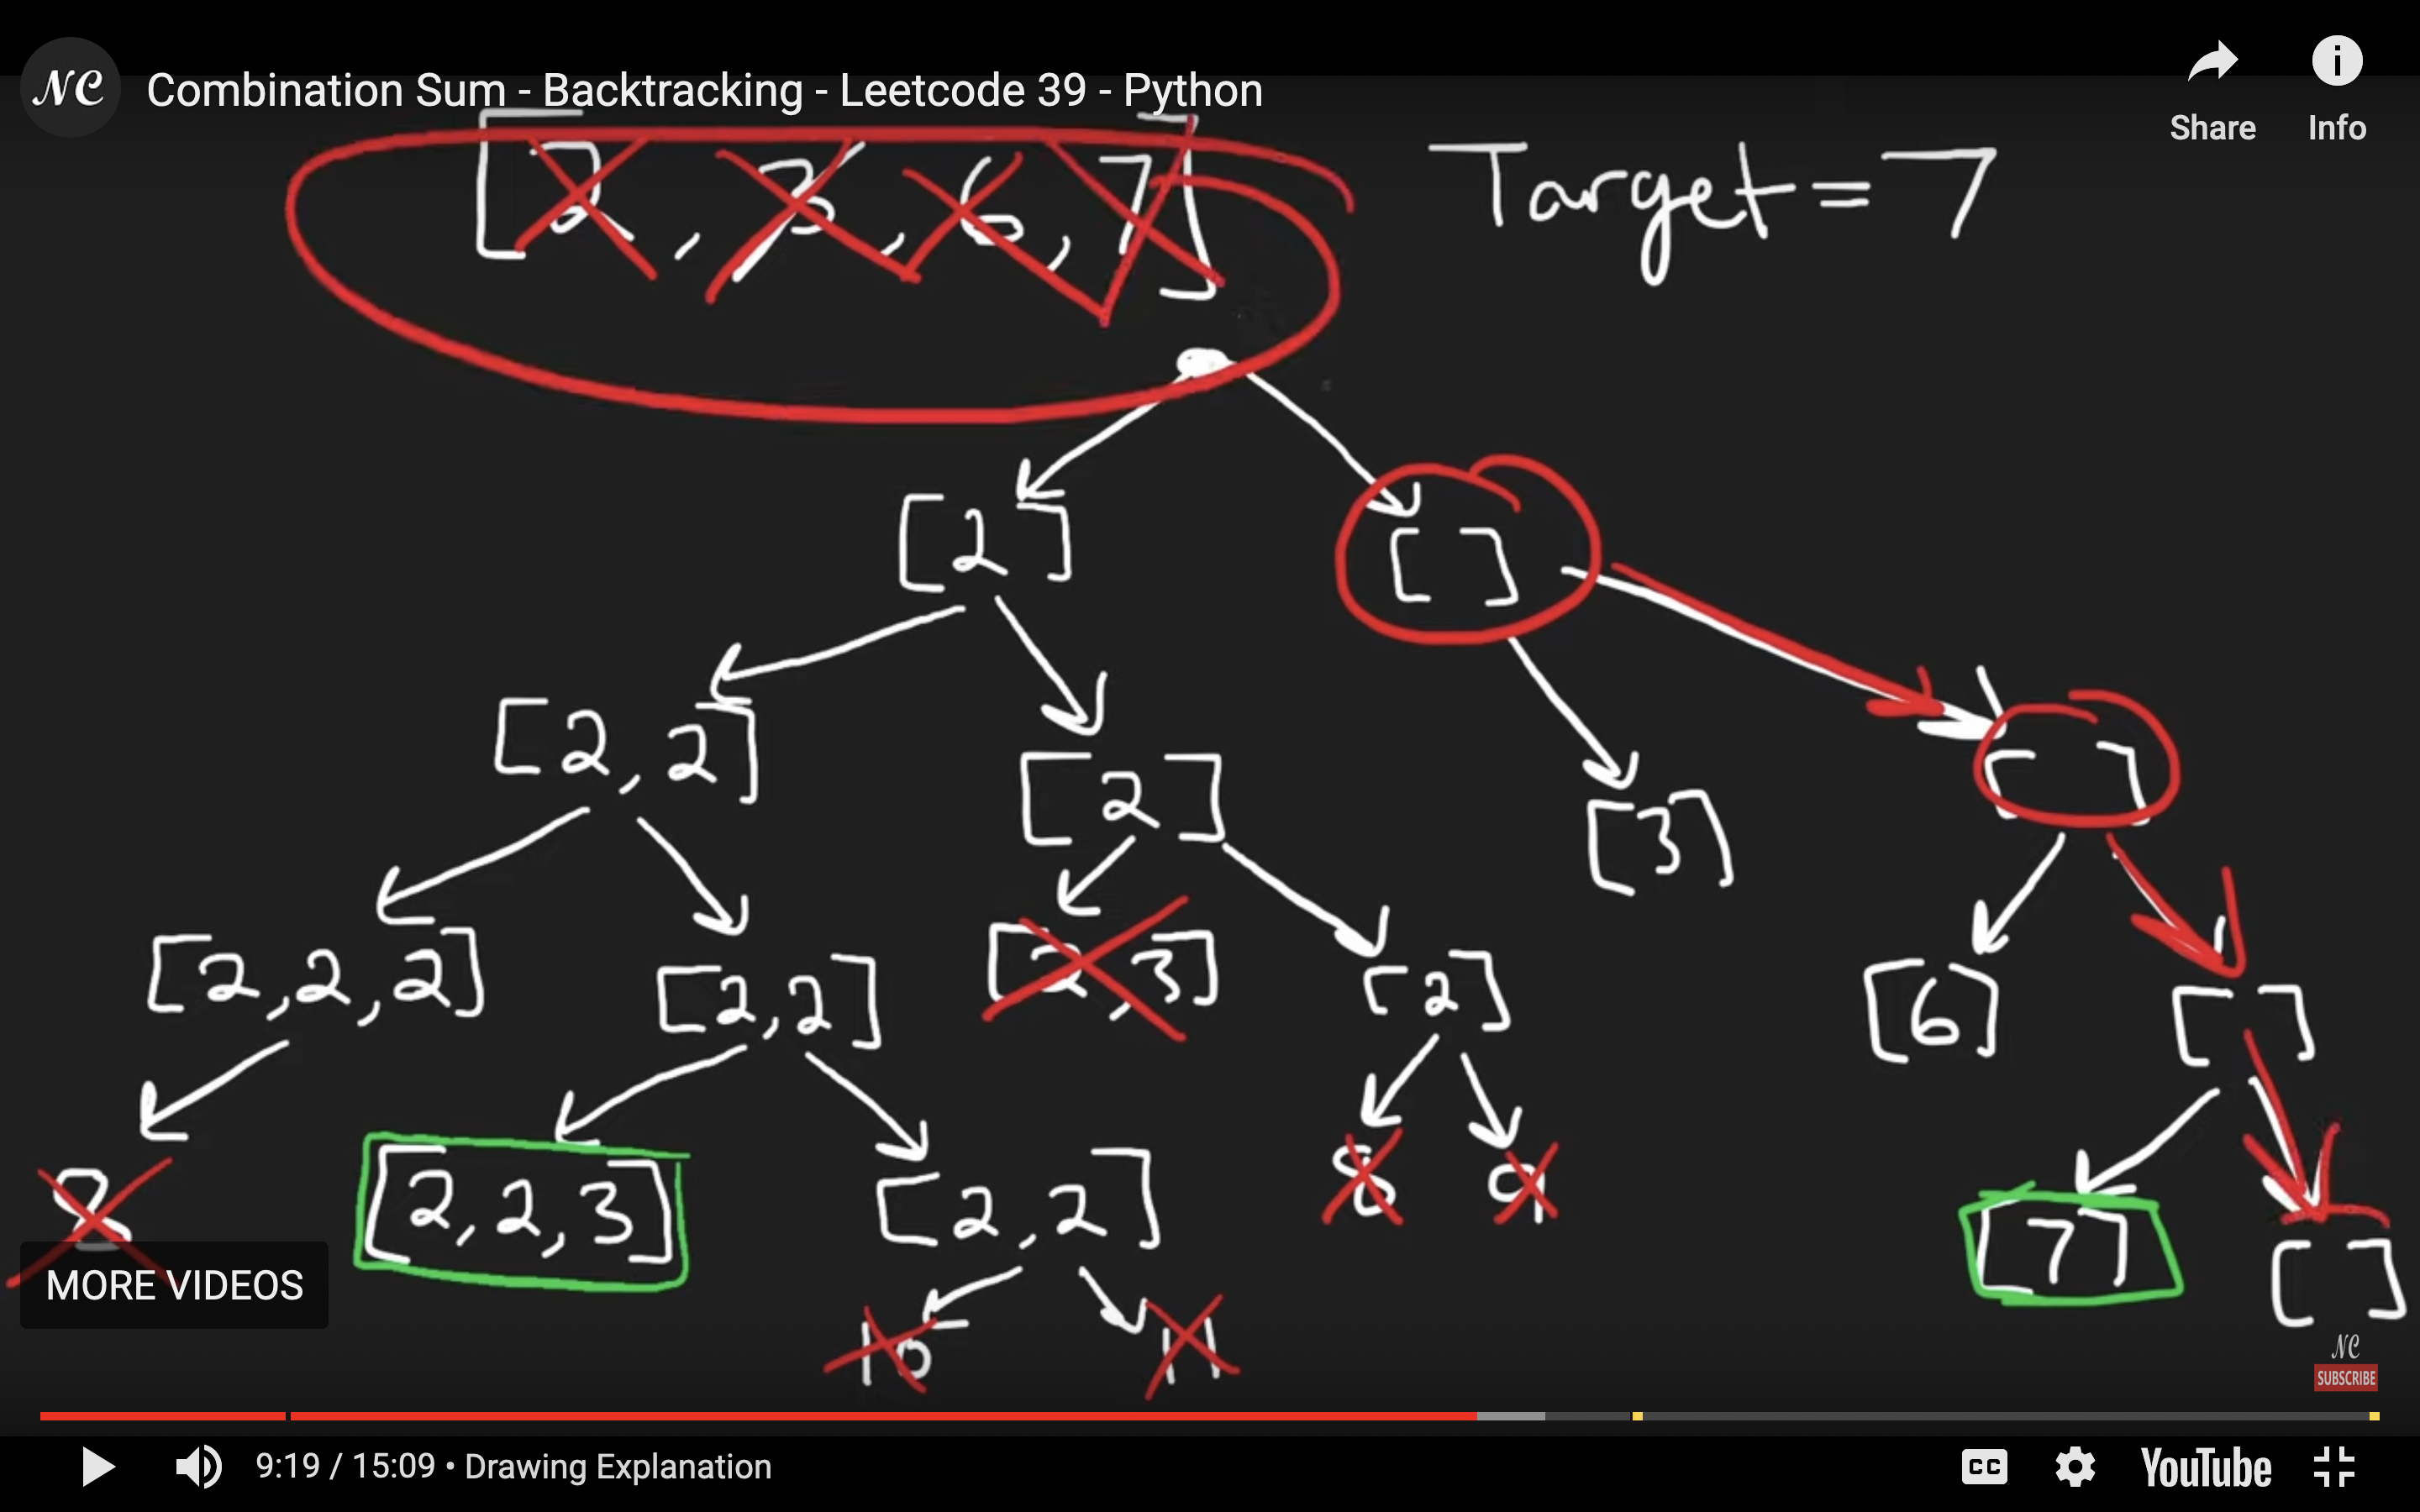 NC Combination Sum - Backtracking - Leetcode 39 - Python
Share Info
[2, 3, 6, 7] Target = 7
[2] [ ]
[2,2] [2] [3] [ ]
[2,2,2] [2,2] [2,3] [2] [6] [ ]
8 [2,2,3] [2,2] 8 9 [7] [ ]
MORE VIDEOS
10 11
NC
SUBSCRIBE
9:19 / 15:09 • Drawing Explanation CC YouTube